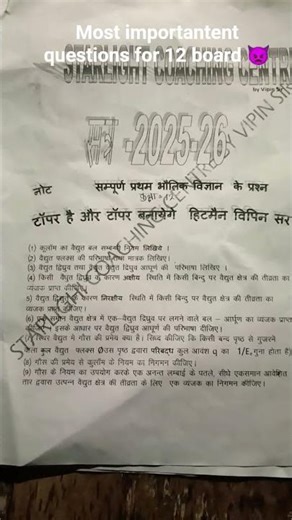 Most importantent
questions for 12 board 👿
STARLIGHT COACHING CENTRE
by Vipin Sir
सत्र -2025-26
नोट सम्पूर्ण प्रथम भौतिक विज्ञान के प्रश्न
टॉपर है और टॉपर बनायेगे हिटमैन विपिन सर
(1) कूलॉम का वैद्युत बल सम्बन्धी नियम लिखिये ।
(2) वैद्युत फ्लक्स की परिभाषा तथा मात्रक लिखिए।
(3) वैद्युत द्विध्रुव तथा वैद्युत द्विध्रुव आघूर्ण की परिभाषा लिखिए ।
(4) किसी वैद्युत द्विध्रुव के कारण अक्षीय स्थिति में किसी बिन्दु पर वैद्युत क्षेत्र की तीव्रता का
व्यंजक प्राप्त कीजिए।
5) वैद्युत द्विध्रुव के कारण निरक्षीय स्थिति में किसी बिन्दु पर वैद्युत क्षेत्र की तीव्रता का
व्यंजक प्राप्त कीजिए।
(6) एक समान वैद्युत क्षेत्र में एक-वैद्युत द्विध्रुव पर लगने वाले बल – आघूर्ण का व्यंजक प्राप्त
इसके आधार पर वैद्युत द्विध्रुव आघूर्ण की परिभाषा दीजिए।
स्थिर वैद्युत में गौस की प्रमेय क्या है। सिध्द कीजिए कि किसी बन्द पृष्ठ से गुजरने
वाला कुल वैद्युत फ्लक्स Ø उस पृष्ठ द्वारा परिबद्ध कुल आवेश q का 1/E₀ गुना होता है।
(8) गौस की प्रमेय से कूलॉम के नियम का निगमन कीजिए।
(9) गौस के नियम का उपयोग करके एक अनन्त लम्बाई के पतले, सीधे एकसमान आवेशित
तार द्वारा उत्पन्न वैद्युत क्षेत्र की तीव्रता के लिए एक व्यंजक का निगमन कीजिए।
STARLIGHT COACHING CENTRE BY VIPIN SIR